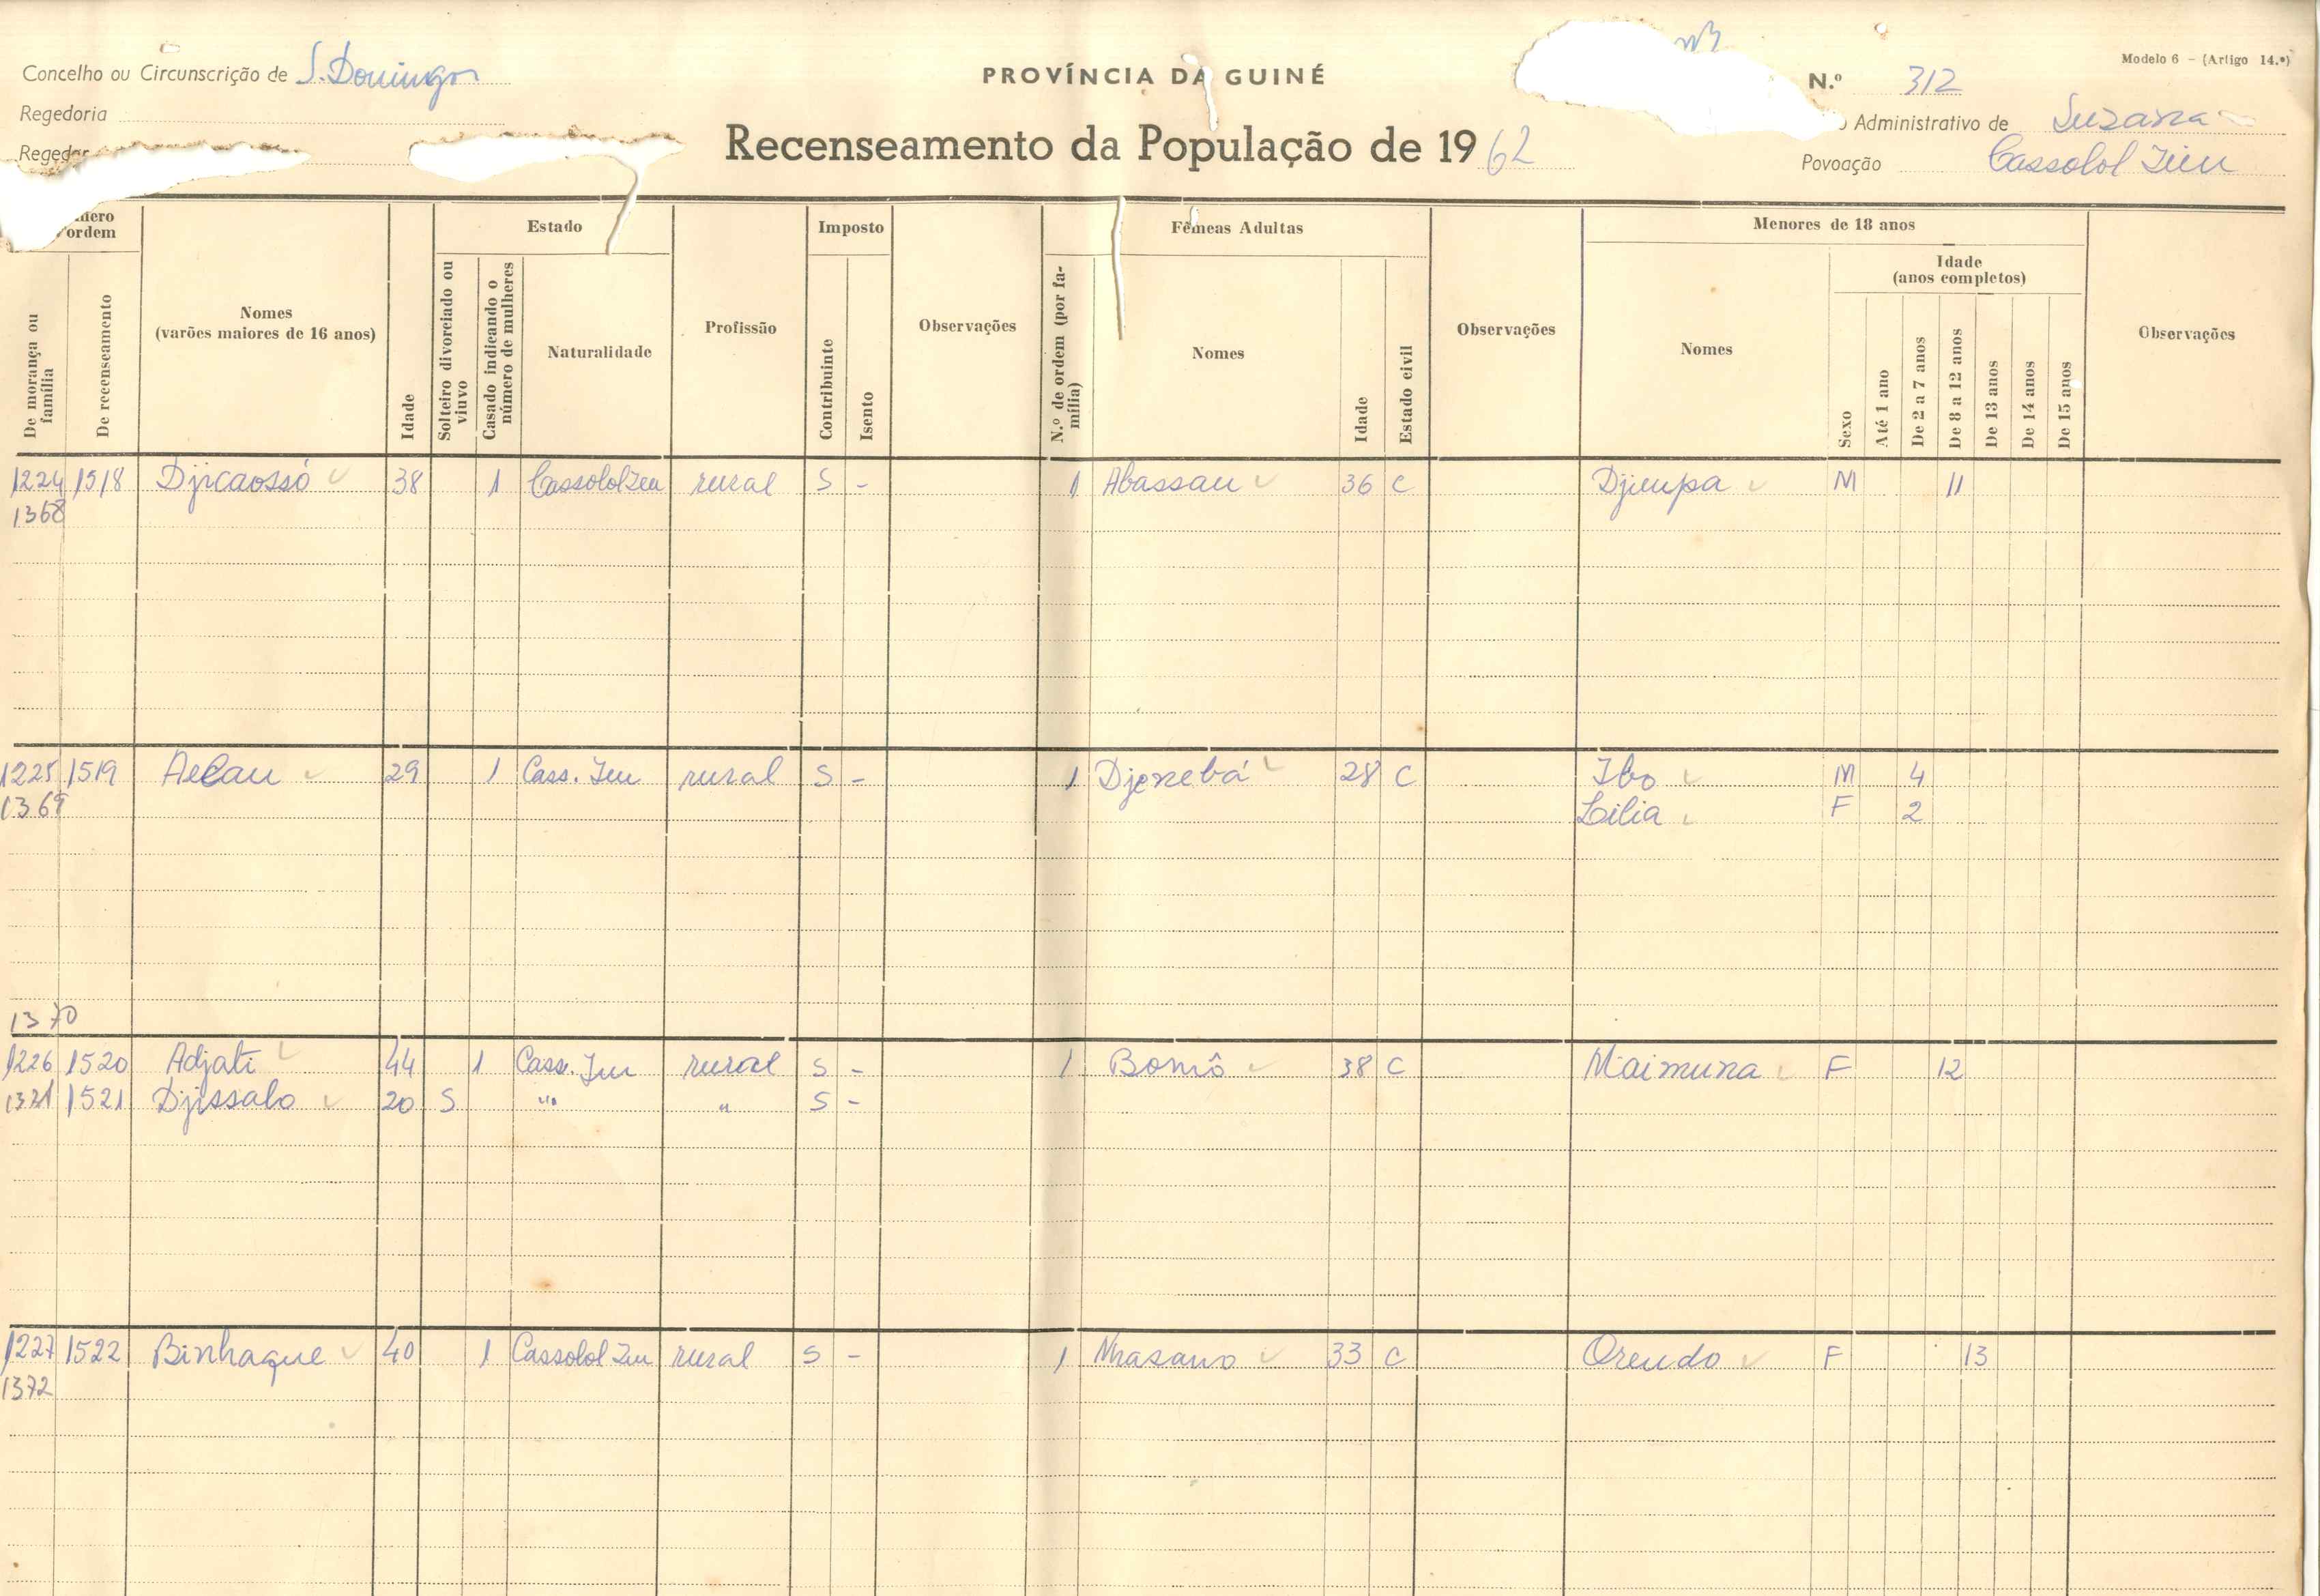 Modelo 6 - (Artigo 14.º)
Concelho ou Circunscrição de S. Domingos
PROVÍNCIA DA GUINÉ
N.º 312
Regedoria
Administrativo de Suzana
Recenseamento da População de 1962
Povoação Cassolol
Estado
Imposto
Fêmeas Adultas
Menores de 18 anos
ordem
De morança ou família
De recenseamento
Nomes (varões maiores de 16 anos)
Idade
Solteiro divorciado ou viuvo
Casado indicando o número de mulheres
Naturalidade
Profissão
Contribuinte
Isento
Observações
N.º de ordem (por família)
Nomes
Idade
Estado civil
Observações
Nomes
Sexo
Idade (anos completos)
Até 1 ano
De 2 a 7 anos
De 8 a 12 anos
De 13 anos
De 14 anos
De 15 anos
Observações
1224 1518 Djicaossó 38 1 Cassolol rural S - 1 Abassau 36 C Djeupa M 11
1368
1225 1519 29 1 Cass. rural S - 1 Djenebá 28 C Ibo M 4
1369 Lilia F 2
1370
1226 1520 Adjati 44 1 Cass. rural S - 1 Bomô 38 C Maimuna F 12
1371 1521 Djissalo 20 S " " S -
1227 1522 Binhaque 40 1 Cassolol rural S - 1 33 C Oreudo F 13
1372